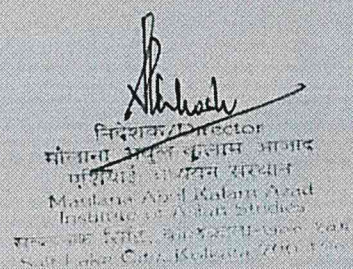 निदेशक/Director
मौलाना अबुल कलाम आज़ाद
एशियाई अध्ययन संस्थान
Maulana Abul Kalam Azad
Institute of Asian Studies
Salt Lake City, Kolkata